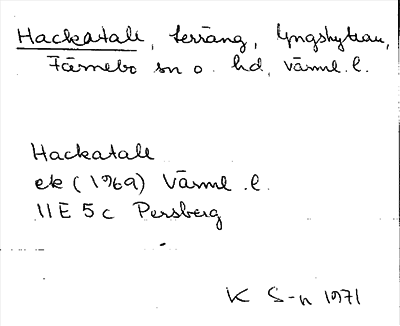 Hackatall, terräng, Yngshyttan,
Färnebo sn o. hd, Värml. l.
Hackatall
ek (1969) Värml. l.
11E 5c Persberg
K S-n 1971